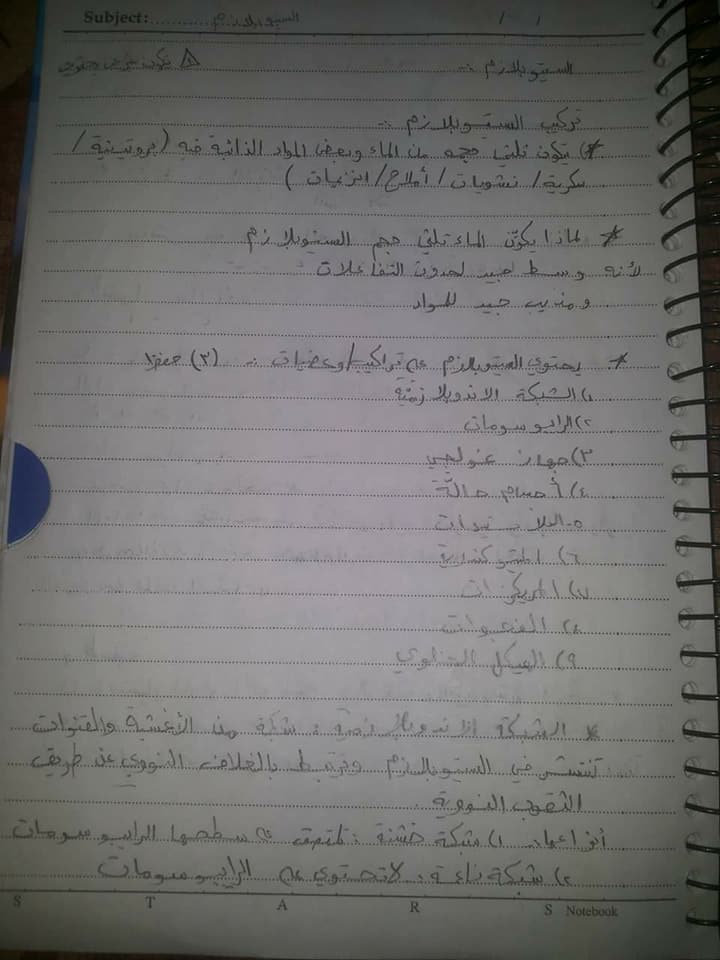 Subject: السيتوبلازم
/ /
السيتوبلازم :-
تركيب السيتوبلازم :-
* يتكون ثلثي حجمه من الماء وبعض المواد الذائبة فيه (بروتينية /
سكرية / نشويات / أملاح / انزيمات )
* لماذا يكوّن الماء ثلثي حجم السيتوبلازم
لأنه وسط جيد لحدوث التفاعلات
ومذيب جيد للمواد
* يحتوي السيتوبلازم على تراكيب/وعضيات :- (٣)
١) الشبكة الاندوبلازمية
٢) الرايبوسومات
٣) جهاز غولجي
٤) أجسام حالّة
٥- البلاستيدات
٦) الميتوكندرية
٧) المريكزات
٨) الفجوات
٩) الهيكل الخلوي
* الشبكة الاندوبلازمية : شبكة من الأغشية والقنوات
تنتشر في السيتوبلازم وترتبط بالغلاف النووي عن طريق
الثقوب النووية .
أنواعها :- ١) شبكة خشنة : تلتصق على سطحها الرايبوسومات
٢) شبكة ناعمة : لا تحتوي على الرايبوسومات
S T A R S Notebook